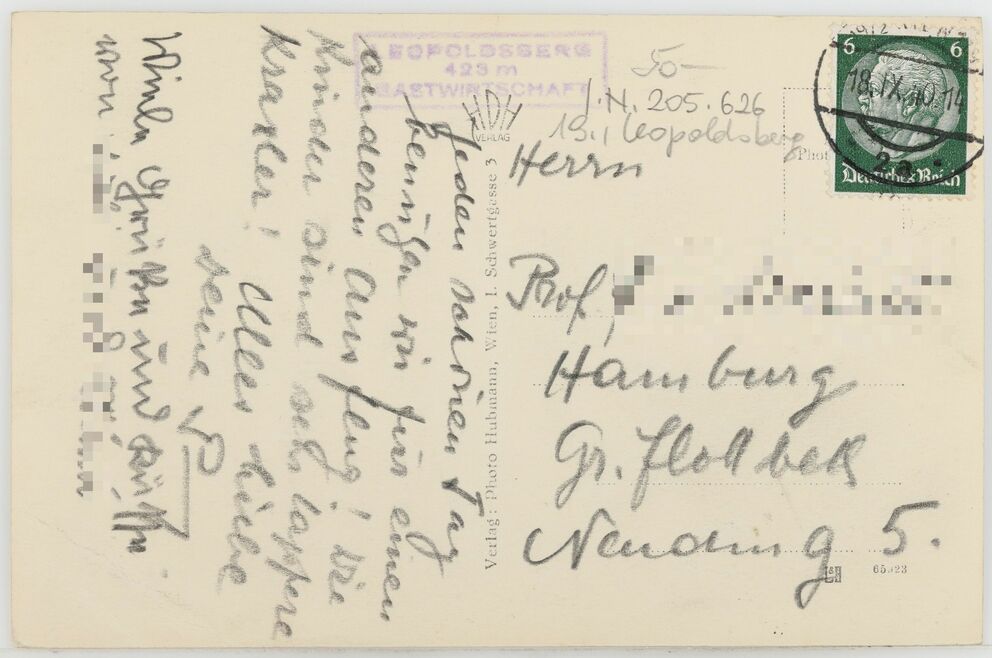 LEOPOLDSBERG
423 m
GASTWIRTSCHAFT
HDH
VERLAG
50-
I.N. 205.626
19., Leopoldsberg
Phot
5 6
18.IX.40.14
2a
Deutsches Reich
Herrn
Prof.
Hamburg
Gr. Flottbek
5.
65923
Verlag: Photo Hubmann, Wien, I. Schwertgasse 3
Jeden schönen Tag
benützen wir für einen
anderen Ausflug! Die
Kinder sind sehr tapfere
Kraxler! Alles Liebe
Deine
Viele Grüße und
von